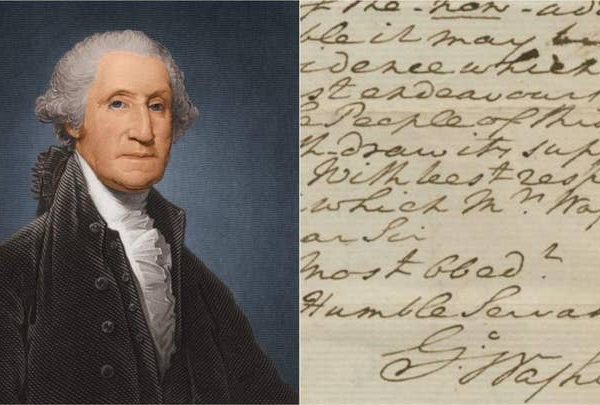 of the non-adv
ble it may be
idence which
st endeavours
e People of this
h-draw its supp
With best resp
which Mrs. Wa
ar Sir
most obedt.
Humble Servan
Go: Washi